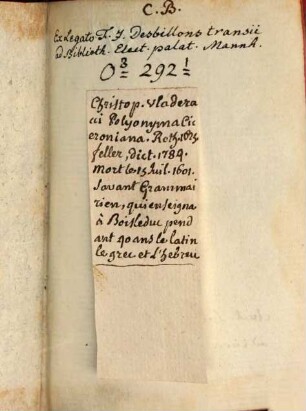 C. B.
Ex Legato F. J. Desbillons transii
ad Biblioth. Elect. palat. Mannh.
O 3 292 1
Christop. Vladera
cci Polyonyma Ci
ceroniana. Roth. 1625
feller, dict. 1784.
mort le 15 Juil. 1601.
Savant Grammai
rien, qui enseigna
à Boisleduc pend
ant 40 ans le latin
le grec et l'hebreu